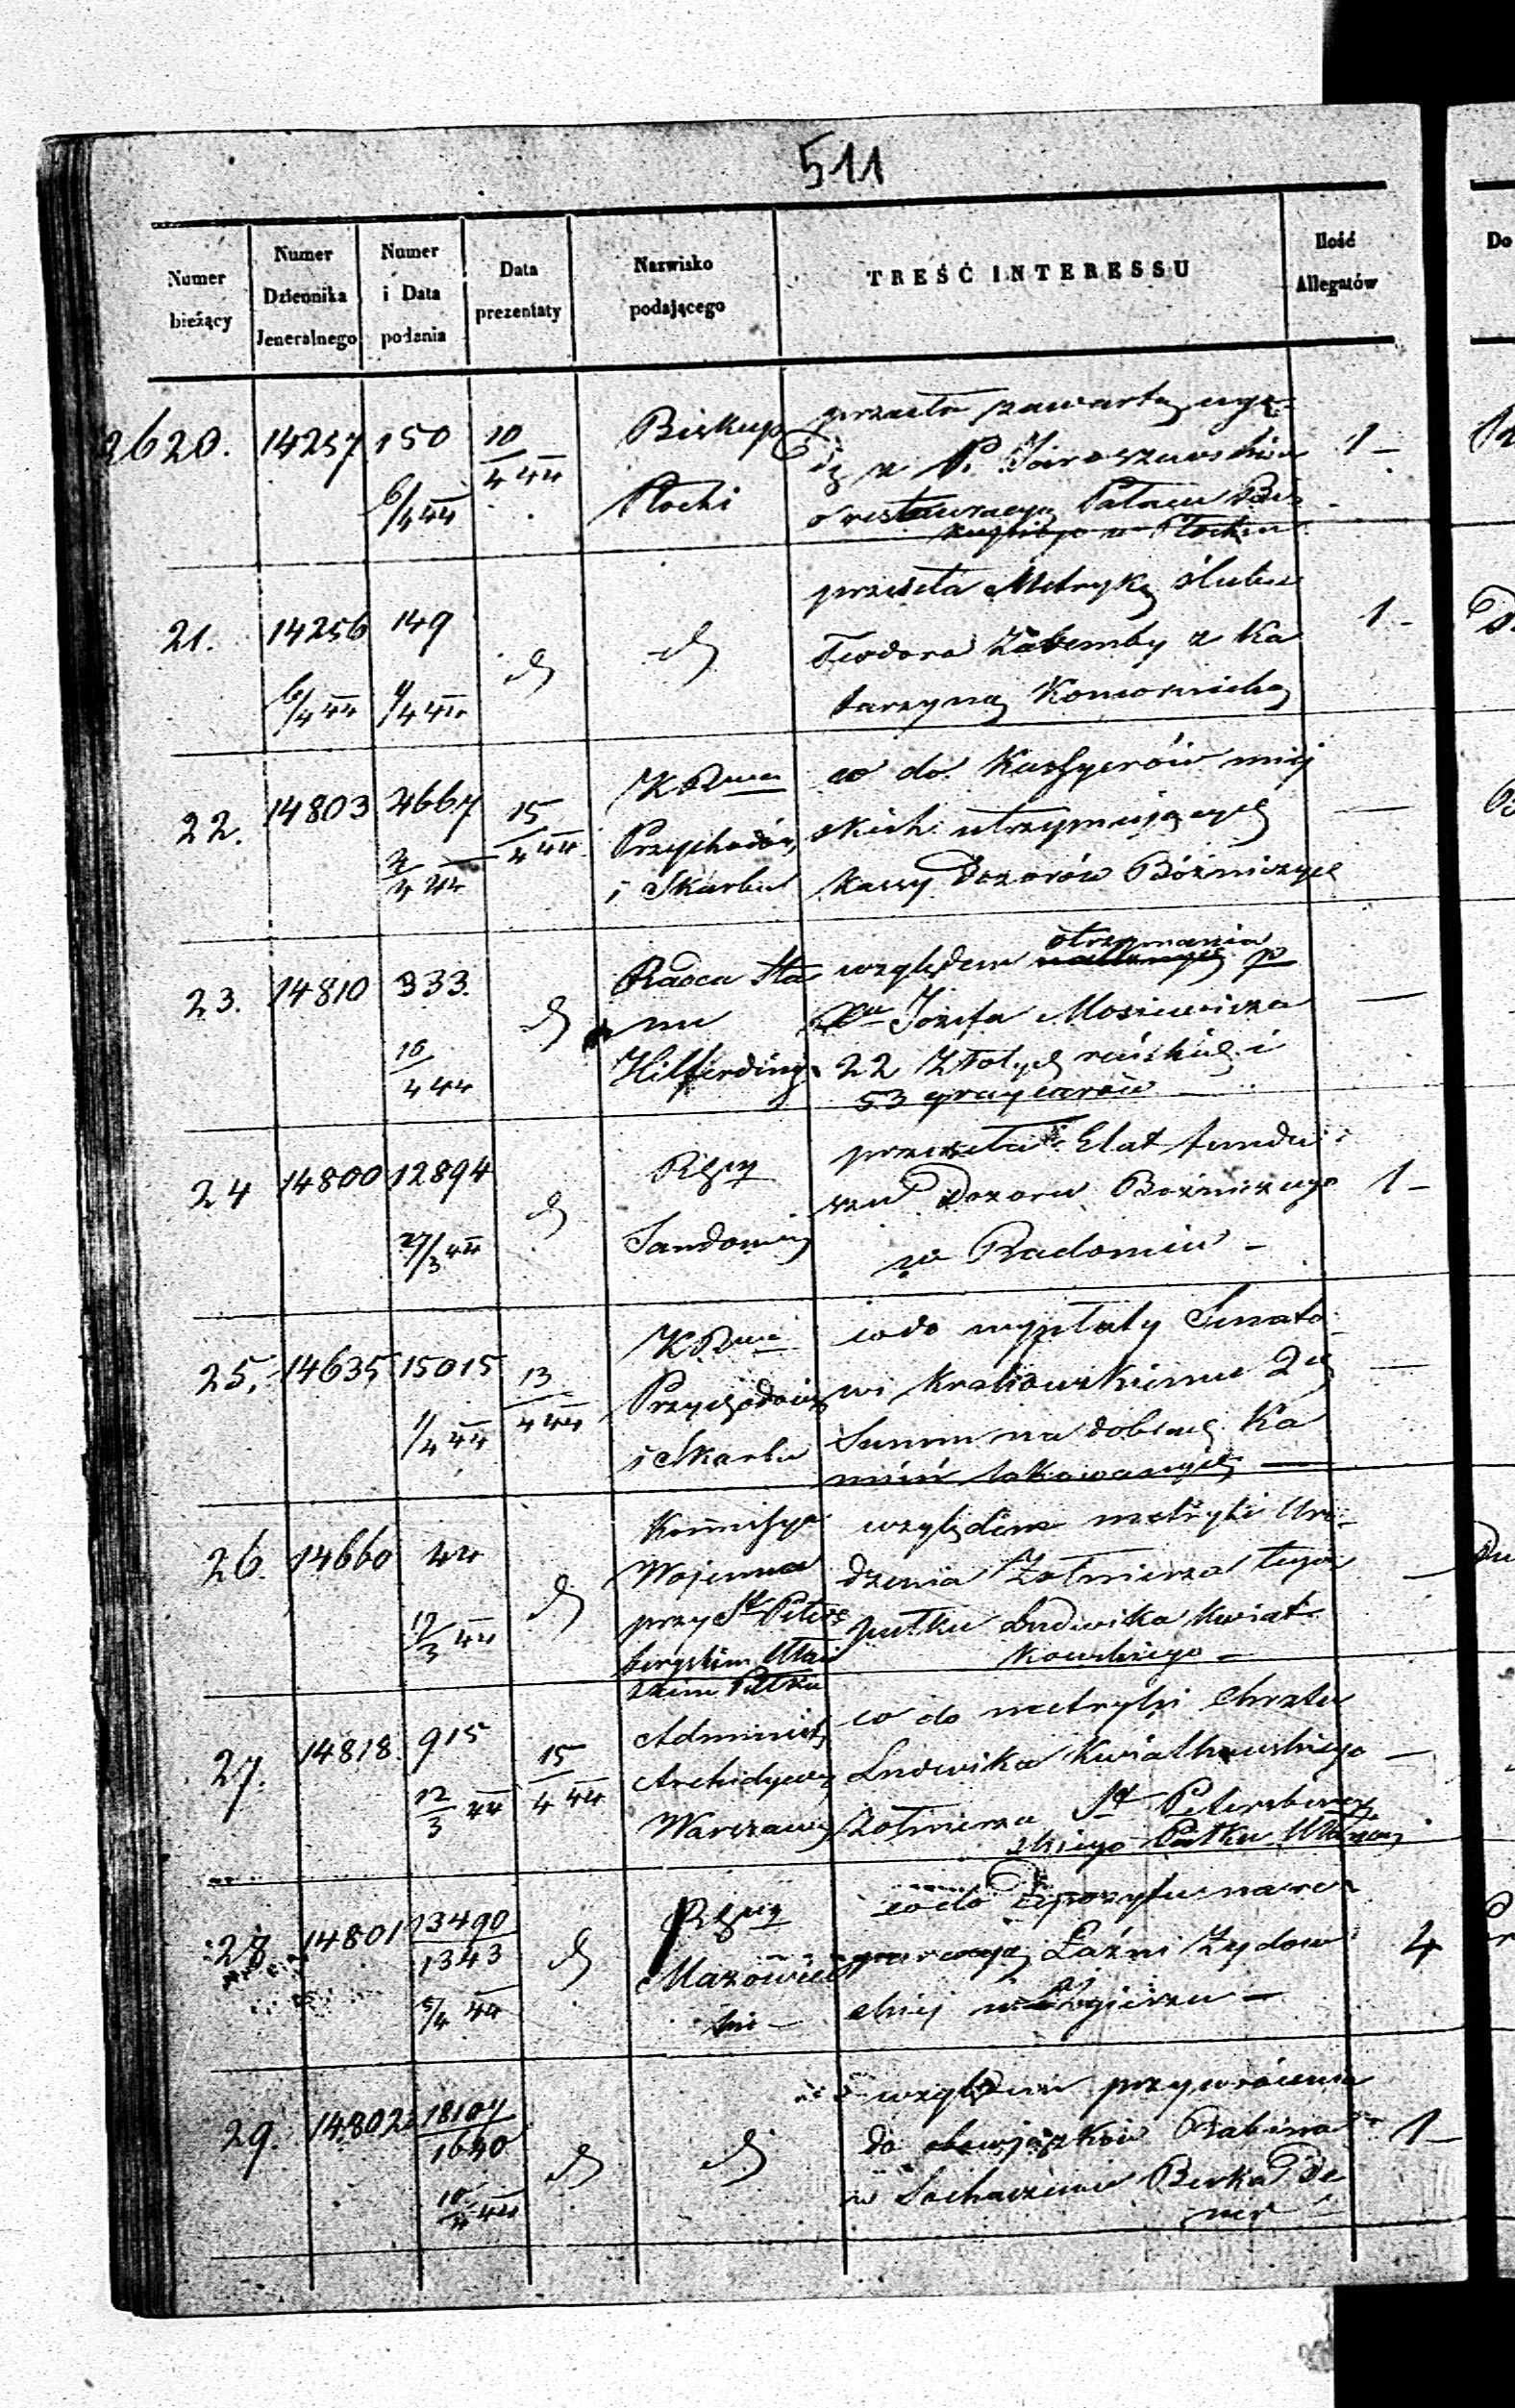 511
Numer bieżący
Numer Dziennika Jeneralnego
Numer i Data podania
Data prezentaty
Nazwisko podającego
TREŚĆ INTERESSU
Ilość Allegatów
Do
2620. 14257 150 6/4 44 10/4 44
Biskup
Płocki
przesła zawartą ugo-
dę z P. Jaroszewskim
o restauracyą Pałacu Bis
kupiego w Płocku
1 -
21. 14256 6/4 44 149 4/4 44
przesyła Metrykę Ślubu
Teodora Zaremby z Ka
tarzyną Komornicką
1 -
22. 14803 4667 2/4 44 15/4 44
K R
Przychodów
i Skarbu
co do Kassyerów miej
skich utrzymujących
Kassy Dozorów Bóżniczych
23. 14810 333. 10/4 44
Radca Sta
nu
Hilferding
względem otrzymania p
Józefa Mosiewicza
22 Złotych reńskich i
53 graycarów
24 14800 12894 27/3 44
Sandomir
przesyła Etat fundu
szu Dozoru Bóżniczego
w Radomiu -
1 -
25. 14635 15015 1/4 44 13/4 44
K R
Przychodów
i Skarbu
co do wypłaty Senato
wi Krakowskiemu 2ch
Summ na dobrach Ka
mień lokowanych
26. 14660 44 12/3 44
Kommissya
Wojenna
przy St Peters
burgskim Ułań
skim Pułku
względem metryki Uro-
dzenia Żołnierza tego
pułku Ludwika Kwiat
kowskiego -
27. 14818. 915 12/3 44 15/4 44
Administ
Archidyecezyi
Warszaw
co do metryki Chrztu
Ludwika Kwiatkowskiego
Żołnierza St Petersburg
skiego Pułku Ułanów
28. 14801 13490/1343 5/4 44
Mazowiec
ki -
co do Depozytu na re
paracyą Łaźni Żydow
skiej w Zgierzu -
4
29. 14802 18107/1690 10/4 44
względem przywrócenia
do obowiązków Rabina
w Sochaczewie Berka De
ner
1 -